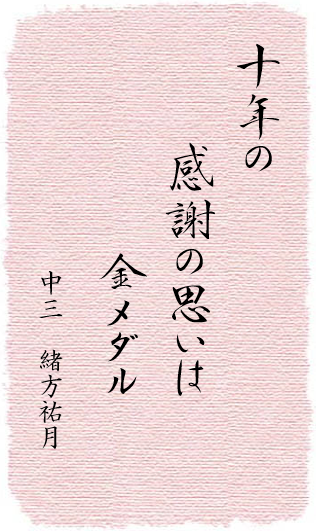 十年の
感謝の思いは
金メダル
中三 緒方祐月